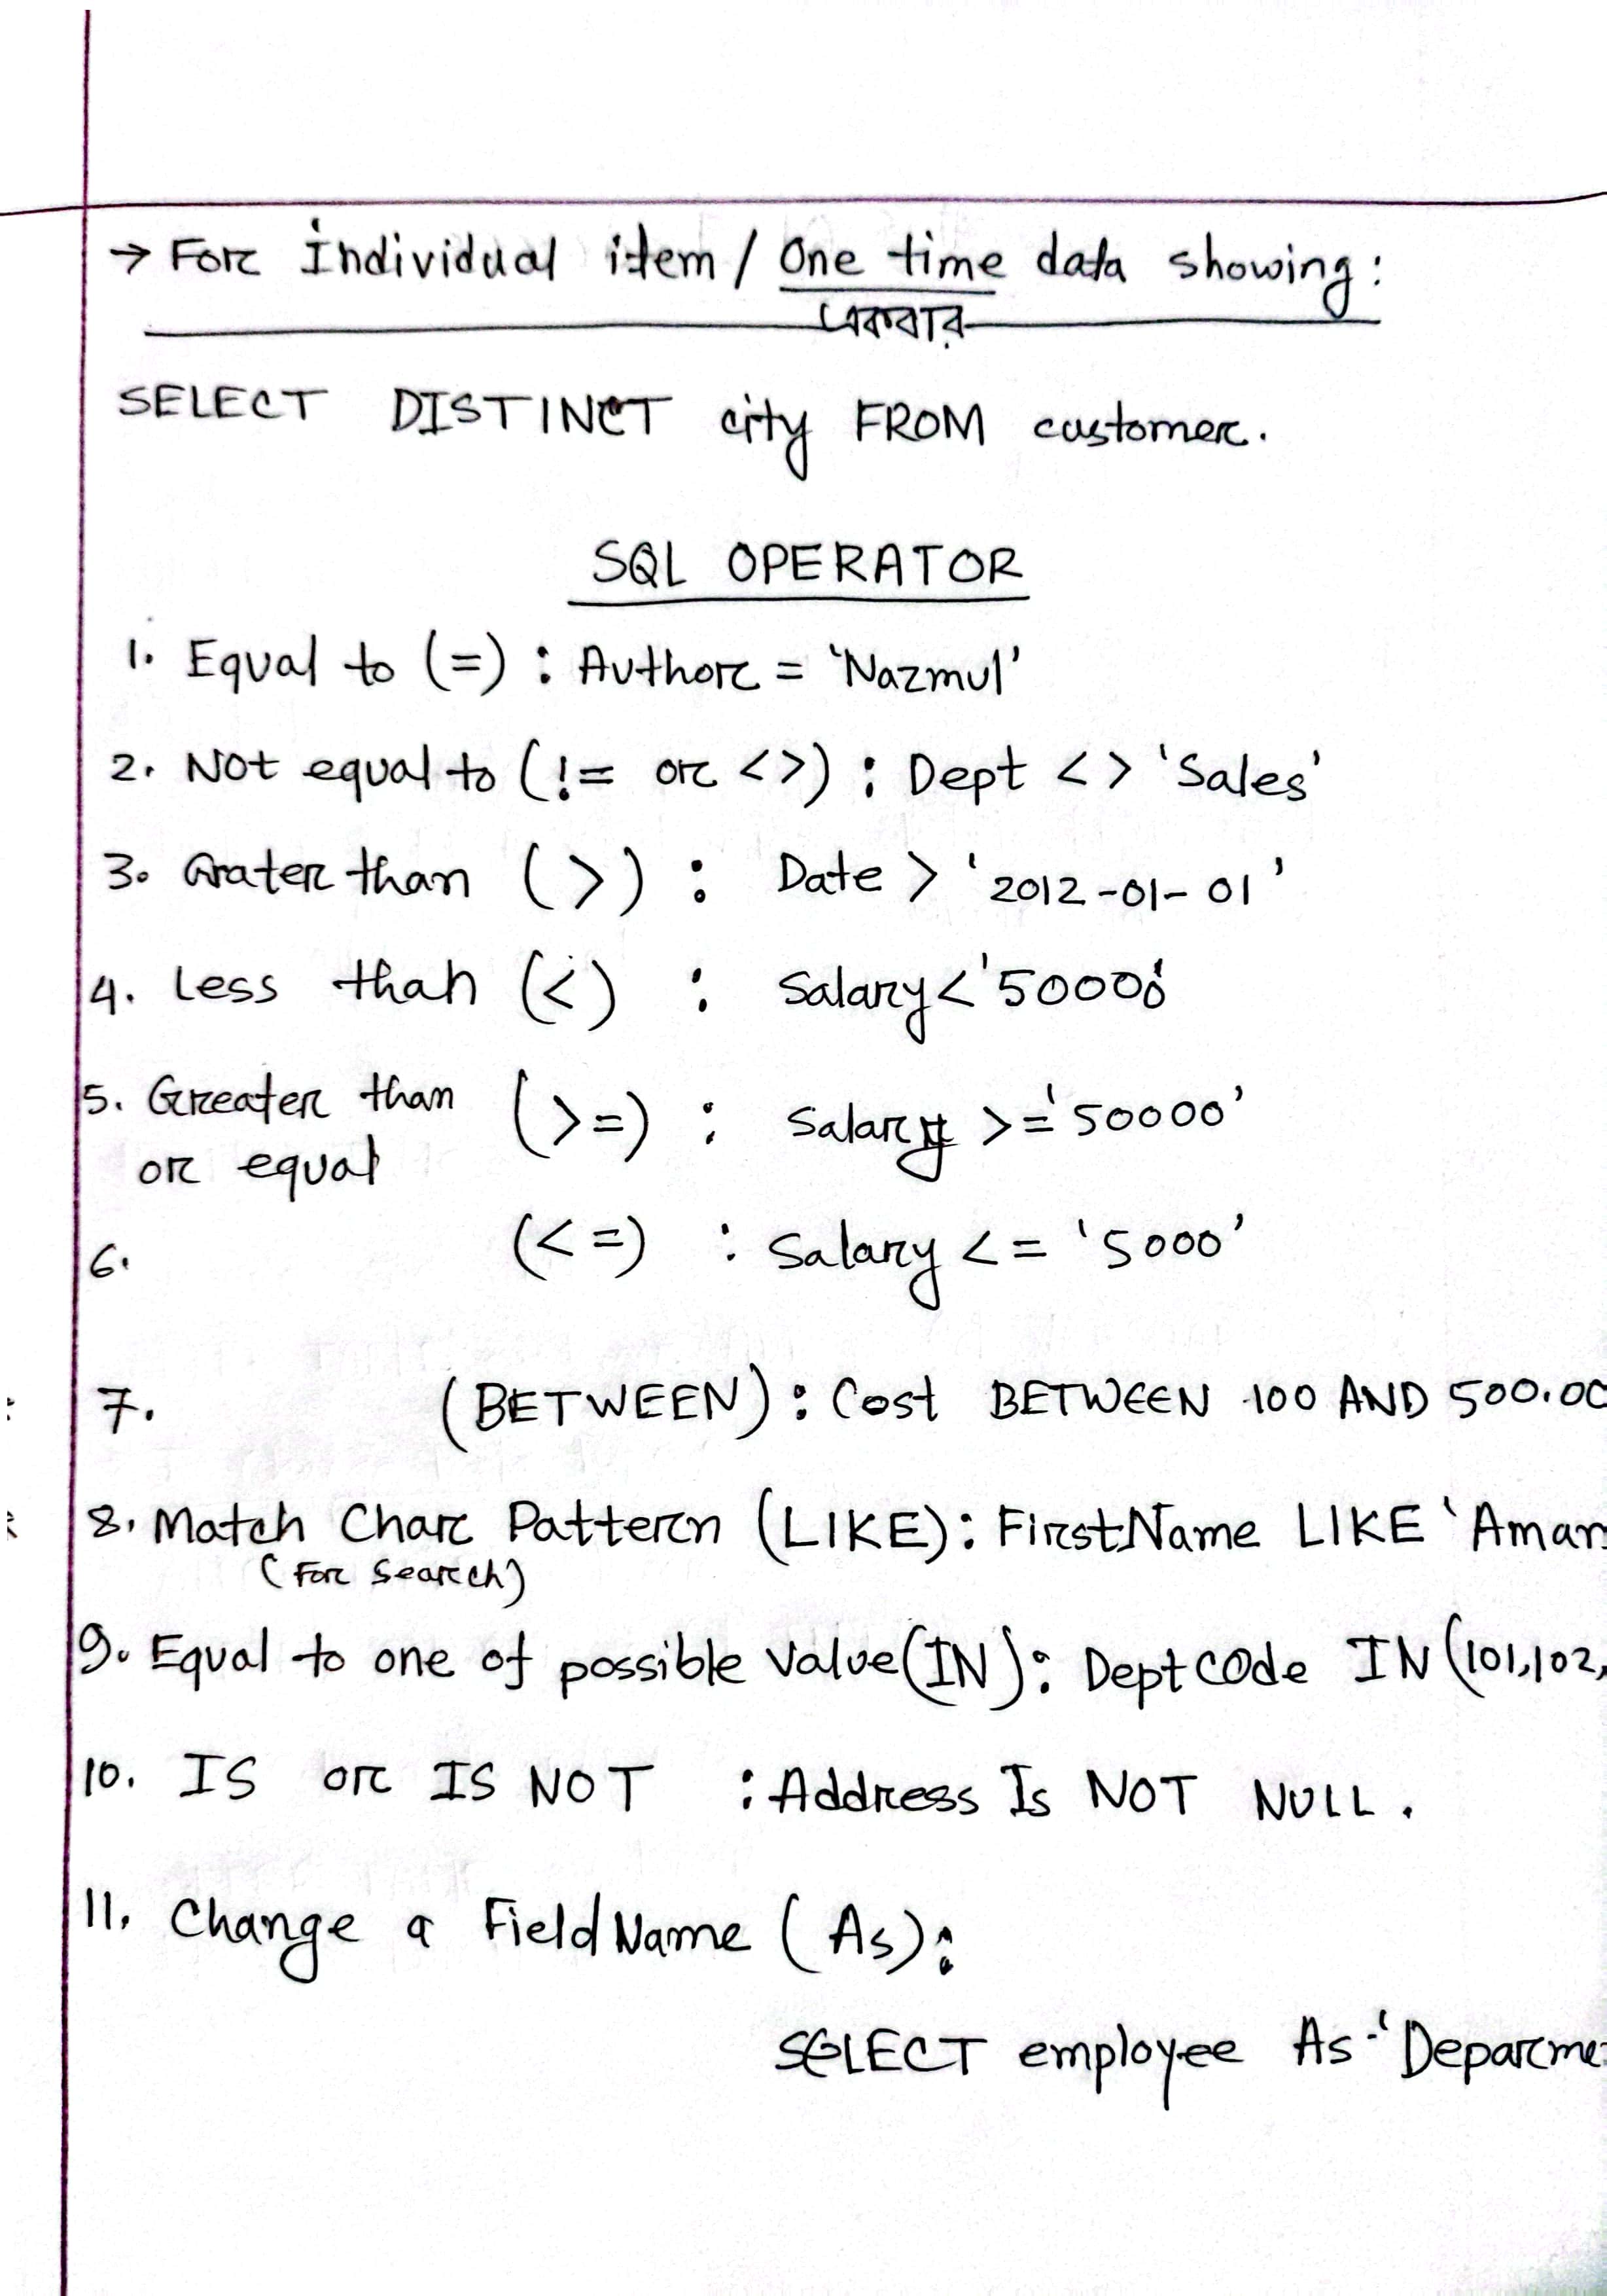 → For Individual item / One time data showing:
একবার
SELECT DISTINCT city FROM customer.
SQL OPERATOR
1. Equal to (=) : Author = 'Nazmul'
2. Not equal to (!= or <>) : Dept <> 'Sales'
3. Grater than (>) : Date > '2012-01-01'
4. Less than (<) : Salary < '50000'
5. Greater than (>=) : Salary >= '50000'
or equal
6. (<=) : Salary <= '5000'
7. (BETWEEN) : Cost BETWEEN 100 AND 500.00
8. Match Char Pattern (LIKE) : FirstName LIKE 'Aman
(For Search)
9. Equal to one of possible Value (IN) : DeptCode IN (101,102,
10. IS or IS NOT : Address Is NOT NULL.
11. Change a Field Name (As) :
SELECT employee As 'Deparme